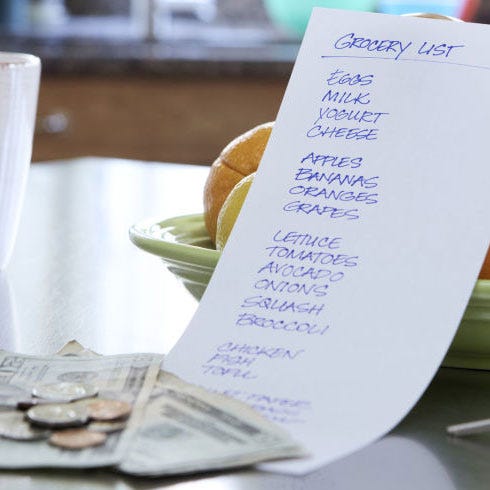 GROCERY LIST
EGGS
MILK
YOGURT
CHEESE
APPLES
BANANAS
ORANGES
GRAPES
LETTUCE
TOMATOES
AVOCADO
ONIONS
SQUASH
BROCCOLI
CHICKEN
FISH
TOFU